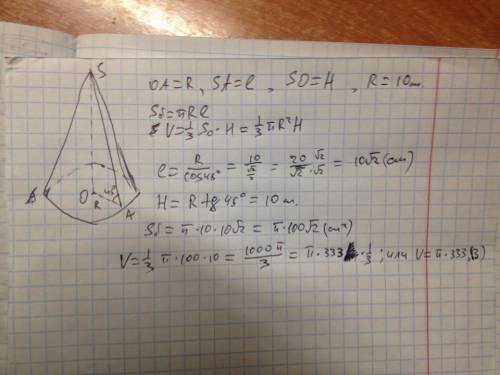 S
OA=R, SA=l, SO=H, R=10 см.
Sб=πRl
V=1/3 So·H=1/3 πR²H
l=R/cos45°=10/(√2/2)=20/√2·√2/√2=10√2 (см)
H=R·tg 45°=10 см.
Sб=π·10·10√2=π·100√2 (см²)
V=1/3 π·100·10=1000π/3=π·333·1/3; или V=π·333,(3)
B
O
45°
R
A